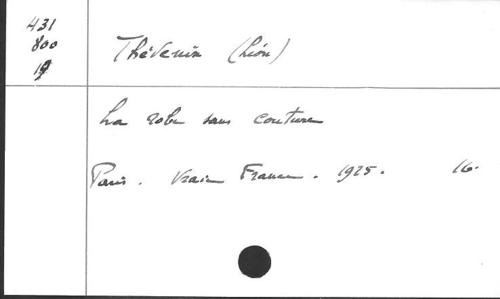 431
800
19
Thévenin (Léon)
La robe sans couture
Paris. Vraie France. 1925. 16.